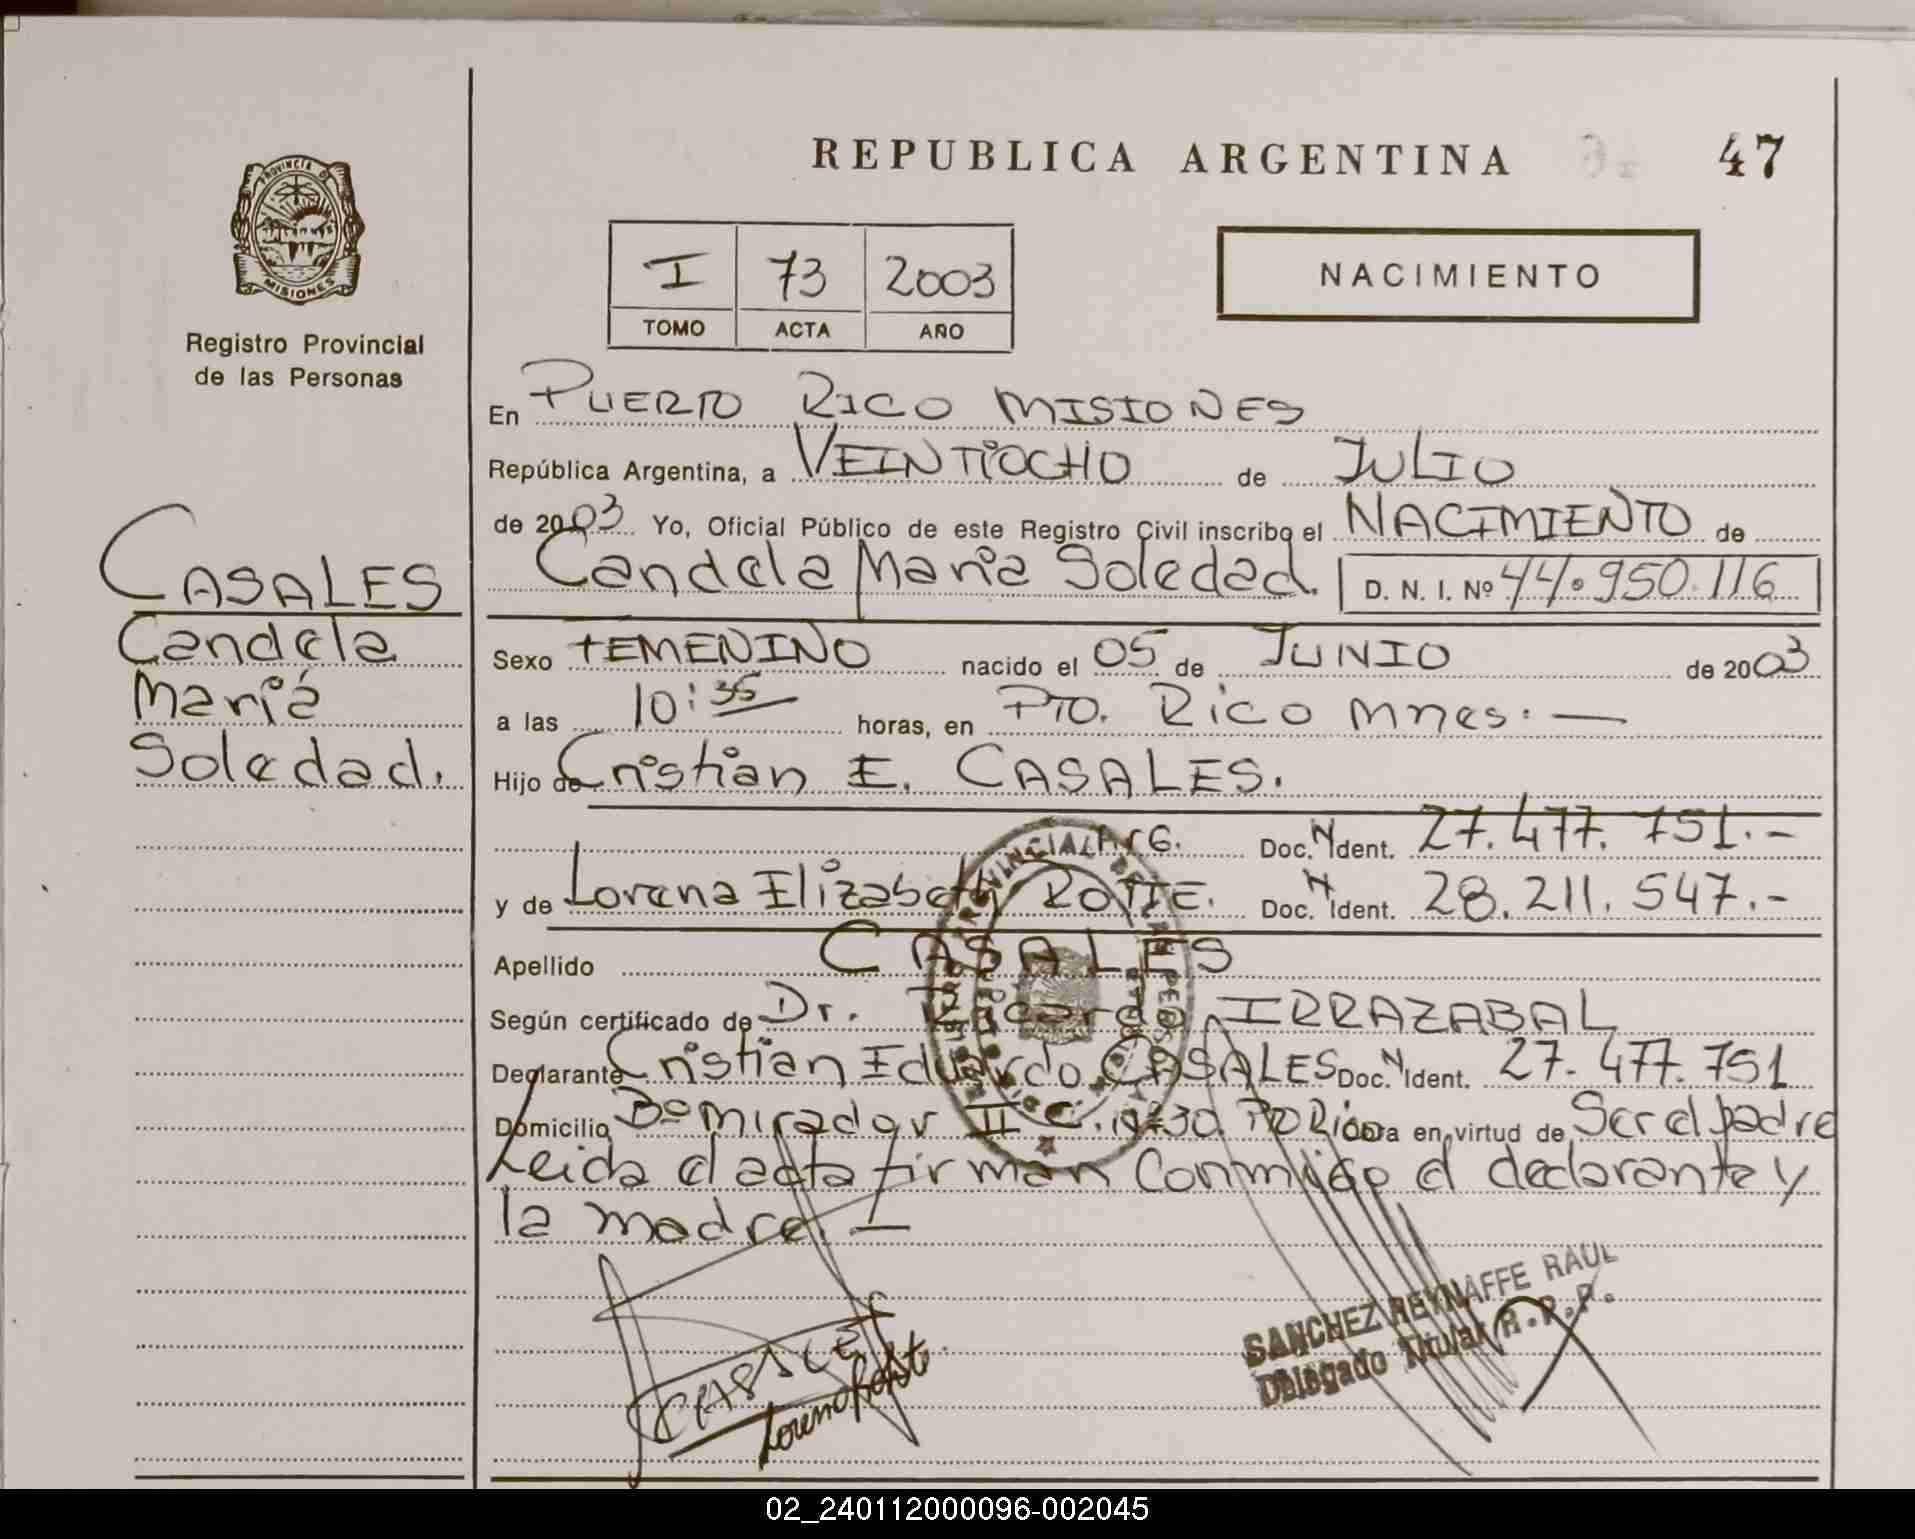 REPUBLICA ARGENTINA
47
PROVINCIA DE
MISIONES
Registro Provincial
de las Personas
I 73 2003
TOMO ACTA AÑO
NACIMIENTO
CASALES
Candela
Maria
Soledad.
En PUERTO RICO MISIONES
República Argentina, a VEINTIOCHO de JULIO
de 2003 Yo, Oficial Público de este Registro Civil inscribo el NACIMIENTO de
Candela Maria Soledad. D. N. I. Nº 44.950.116
Sexo FEMENINO nacido el 05 de JUNIO de 2003
a las 10:35 horas, en Pto. Rico Mnes. —
Hijo de Cristian E. CASALES.
ArG. Doc. N Ident. 27.477.751.-
y de Lorena Elizabeth ROTTE. Doc. N Ident. 28.211.547.-
Apellido CASALES
Según certificado de Dr. Ricardo IRRAZABAL
Declarante Cristian Eduardo CASALES Doc. N Ident. 27.477.751
Domicilio Bº Mirador II C. nº 30. Pto Rico Obra en virtud de Ser el padre
Leida el acta firman Conmigo el declarante y
la madre. —
SANCHEZ REYNAFFE RAUL
Delegado Titular R.P.P.
02_240112000096-002045